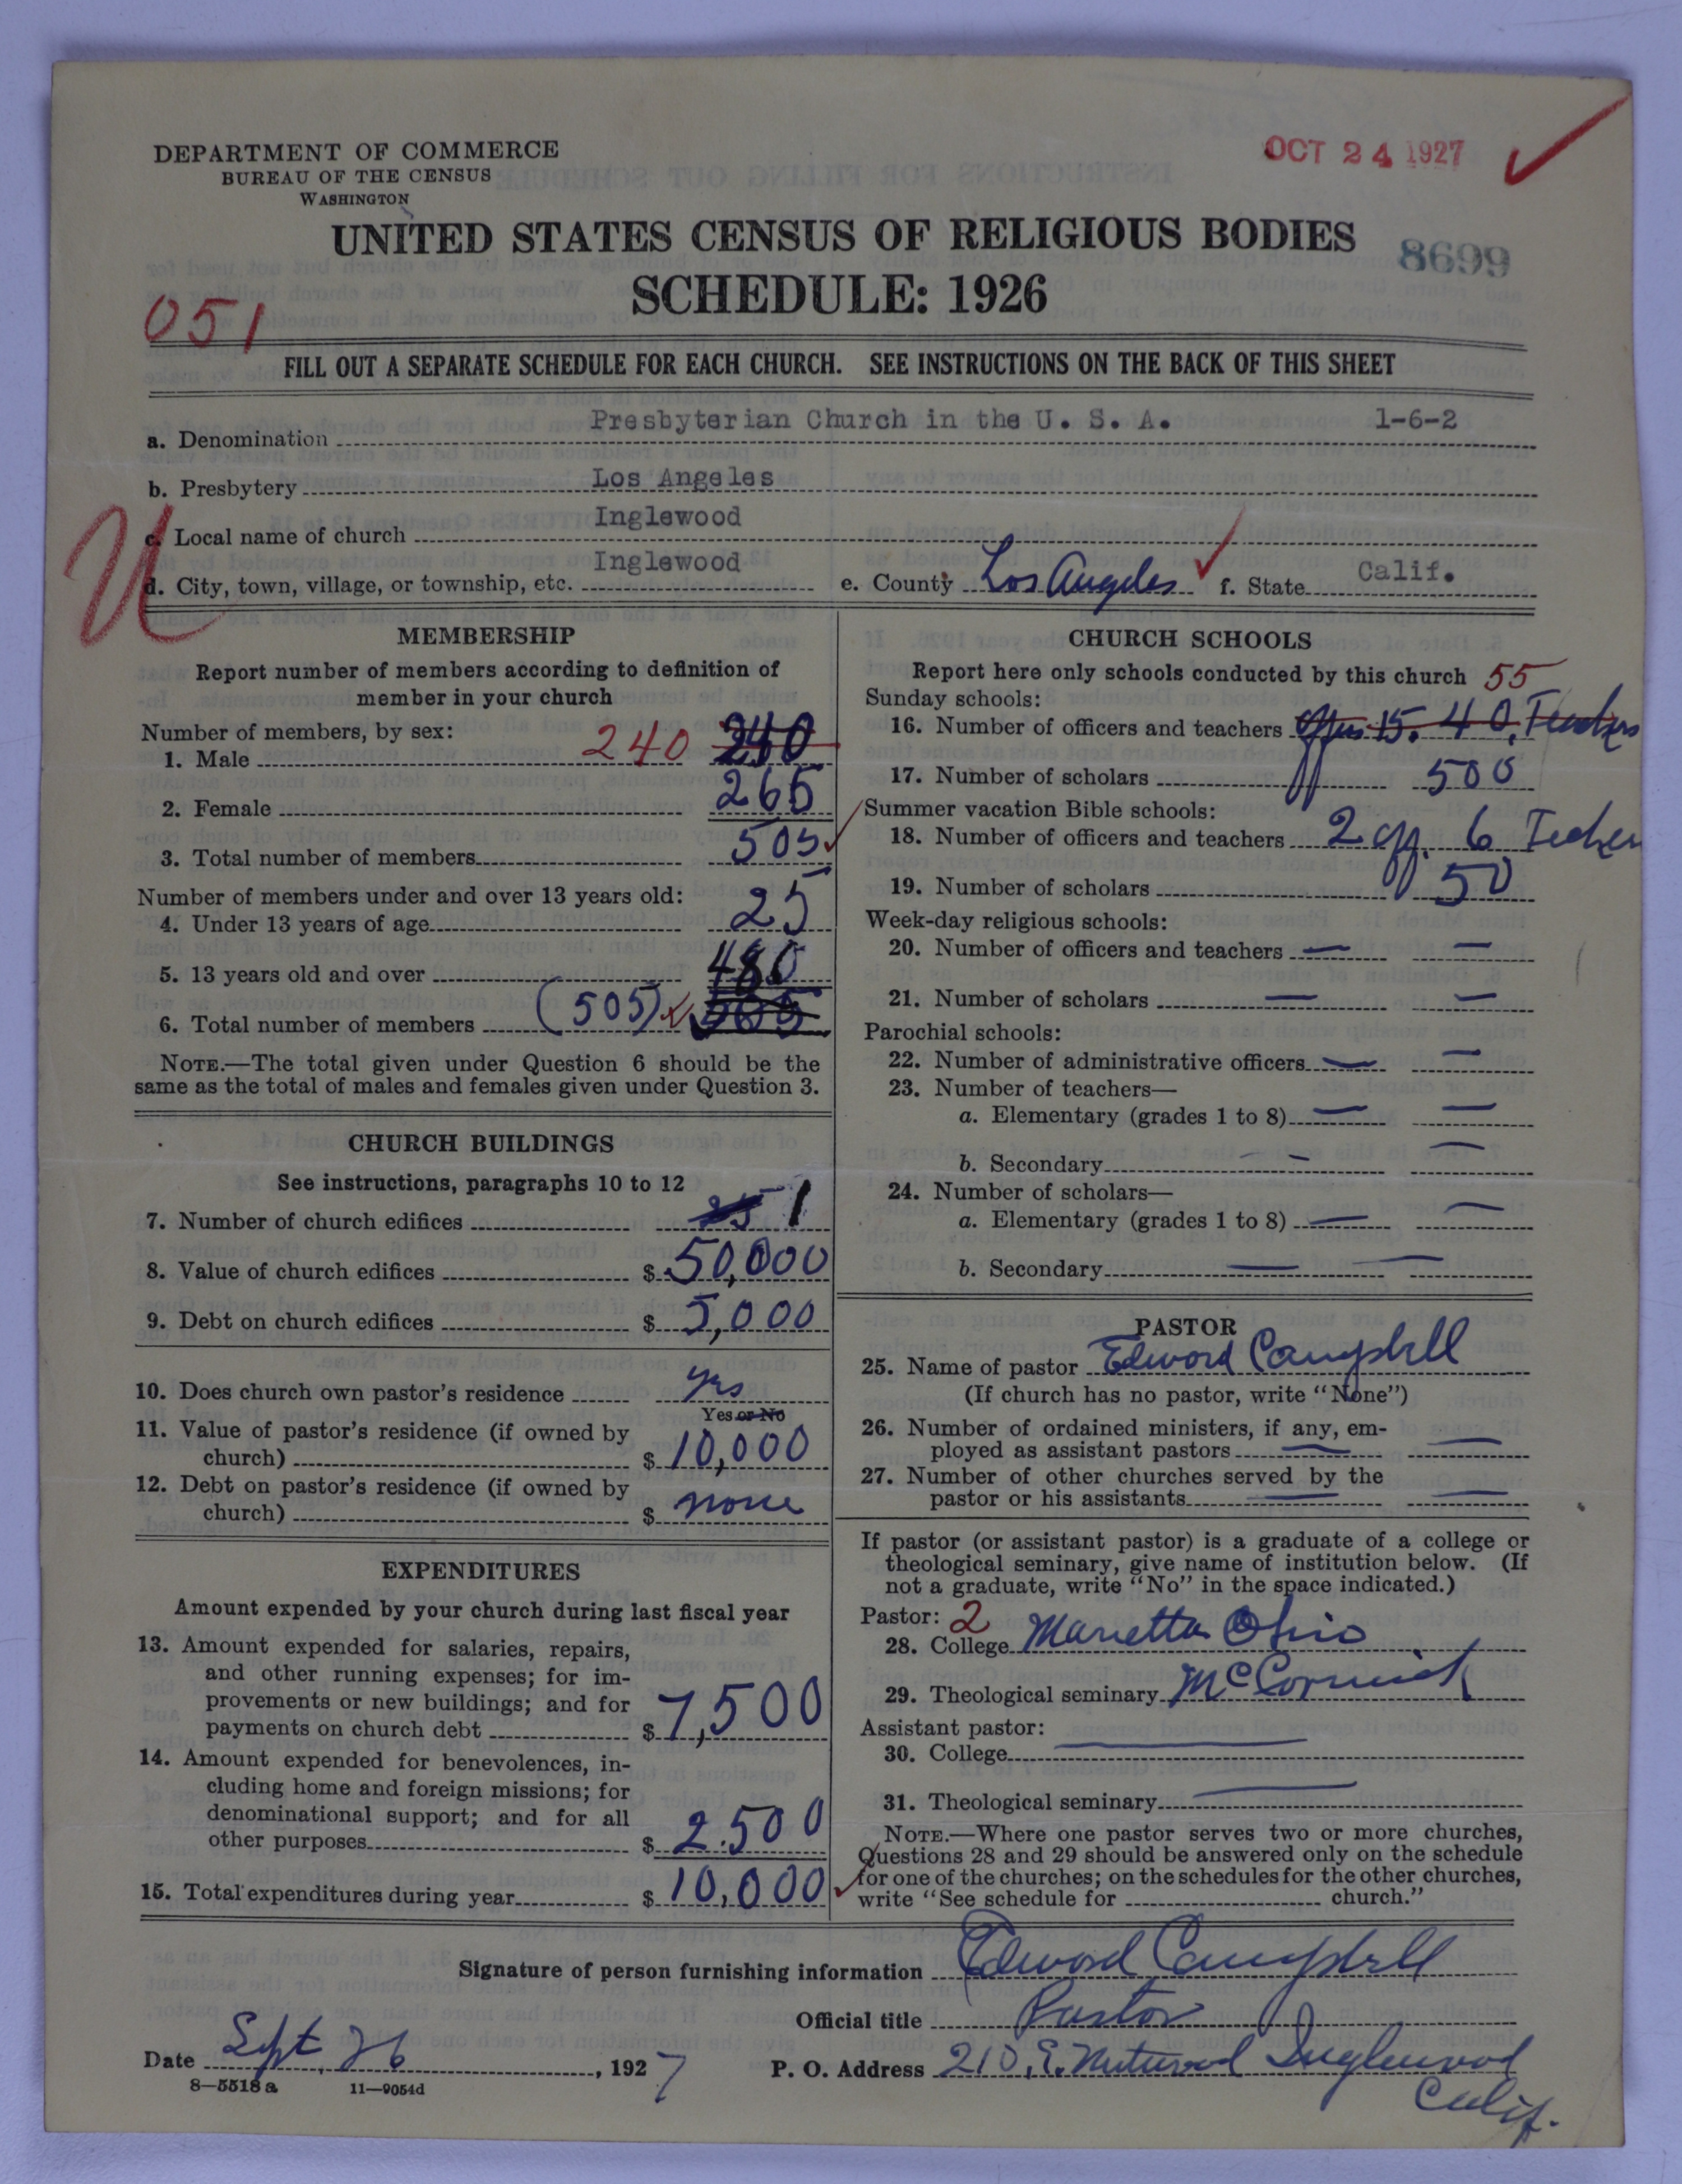 DEPARTMENT OF COMMERCE
BUREAU OF THE CENSUS
WASHINGTON
OCT 24 1927
UNITED STATES CENSUS OF RELIGIOUS BODIES
8699
SCHEDULE: 1926
051
FILL OUT A SEPARATE SCHEDULE FOR EACH CHURCH. SEE INSTRUCTIONS ON THE BACK OF THIS SHEET
a. Denomination Presbyterian Church in the U. S. A. 1-6-2
b. Presbytery Los Angeles
c. Local name of church Inglewood
d. City, town, village, or township, etc. Inglewood e. County Los Angeles f. State Calif.
U
MEMBERSHIP
Report number of members according to definition of
member in your church
Number of members, by sex:
1. Male 240 240
2. Female 265
3. Total number of members 505
Number of members under and over 13 years old:
4. Under 13 years of age 25
5. 13 years old and over 480
6. Total number of members (505) 505
NOTE.—The total given under Question 6 should be the
same as the total of males and females given under Question 3.
CHURCH BUILDINGS
See instructions, paragraphs 10 to 12
7. Number of church edifices 1
8. Value of church edifices $ 50,000
9. Debt on church edifices $ 5,000
10. Does church own pastor's residence yes
Yes or No
11. Value of pastor's residence (if owned by
church) $ 10,000
12. Debt on pastor's residence (if owned by
church) $ none
EXPENDITURES
Amount expended by your church during last fiscal year
13. Amount expended for salaries, repairs,
and other running expenses; for im-
provements or new buildings; and for
payments on church debt $ 7,500
14. Amount expended for benevolences, in-
cluding home and foreign missions; for
denominational support; and for all
other purposes $ 2.500
15. Total expenditures during year $ 10,000
CHURCH SCHOOLS
Report here only schools conducted by this church 55
Sunday schools:
16. Number of officers and teachers 15. 40, Teachers
17. Number of scholars 500
Summer vacation Bible schools:
18. Number of officers and teachers 2 off. 6 Teacher
19. Number of scholars 50
Week-day religious schools:
20. Number of officers and teachers — —
21. Number of scholars — —
Parochial schools:
22. Number of administrative officers — —
23. Number of teachers—
a. Elementary (grades 1 to 8) — —
b. Secondary — —
24. Number of scholars—
a. Elementary (grades 1 to 8) — —
b. Secondary — —
PASTOR
25. Name of pastor Edward Campbell
(If church has no pastor, write "None")
26. Number of ordained ministers, if any, em-
ployed as assistant pastors — —
27. Number of other churches served by the
pastor or his assistants — —
If pastor (or assistant pastor) is a graduate of a college or
theological seminary, give name of institution below. (If
not a graduate, write "No" in the space indicated.)
Pastor: 2
28. College Marietta Ohio
29. Theological seminary McCormick
Assistant pastor:
30. College —
31. Theological seminary —
NOTE.—Where one pastor serves two or more churches,
Questions 28 and 29 should be answered only on the schedule
for one of the churches; on the schedules for the other churches,
write "See schedule for church."
Signature of person furnishing information Edward Campbell
Official title Pastor
Date Sept. 26, 1927 P. O. Address 210, E. Inglewood
Calif.
8—5518 a 11—9054d